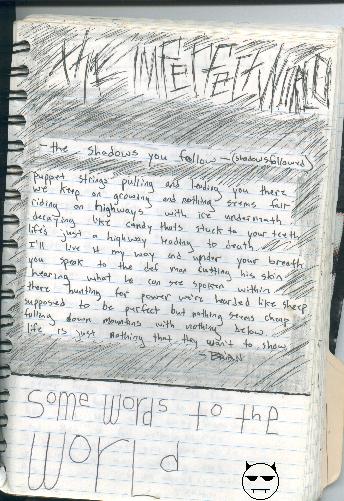 THE IMPERFECT WORLD
- the shadows you follow - (shadowsfollowed)
puppet strings pulling and leading you there
we keep on growing and nothing seems fair
riding on highways with ice underneath
decaying like candy thats stuck to your teeth
life's just a highway leading to death
I'll live it my way and under your breath
you speak to the def man cutting his skin
hearing what he can see spoken within
there hunting for power we're hearded like sheep
supposed to be perfect but nothing seems cheap
falling down mountains with nothing below
life is just nothing that they want to show
- BRIAN
Some words to the
WORLd